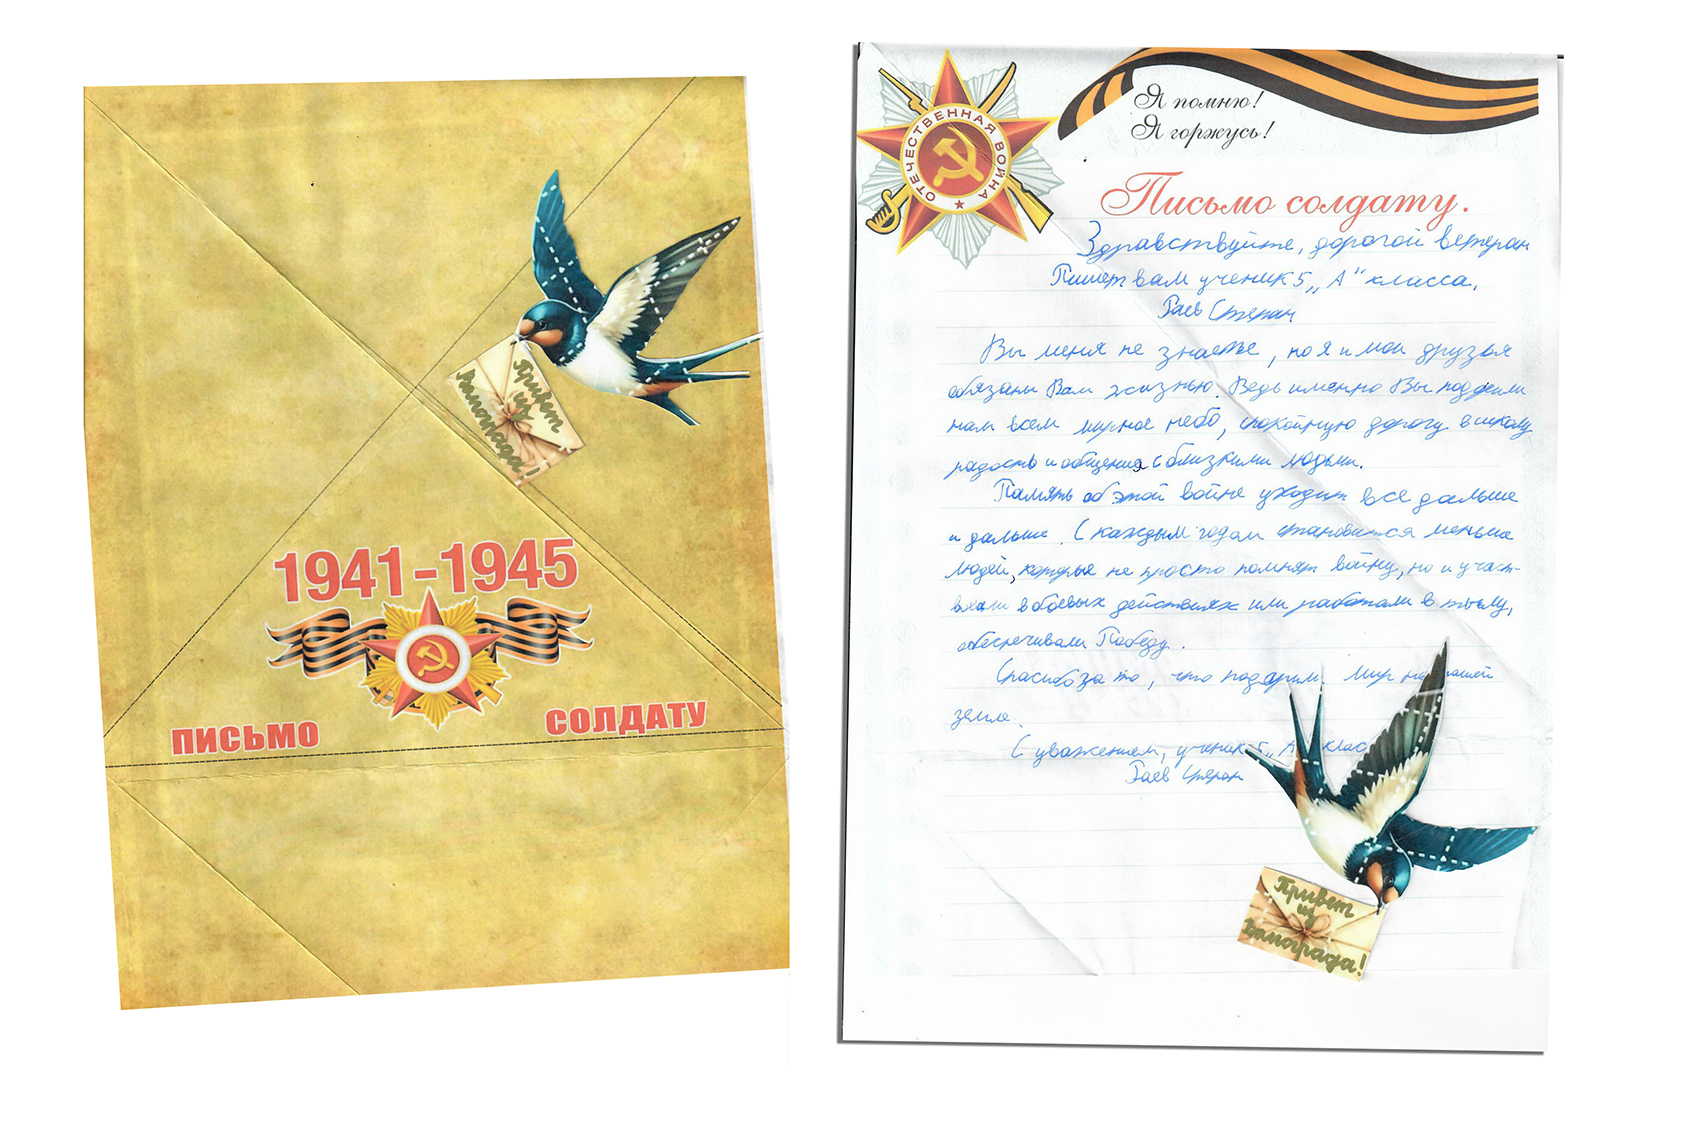 Привет
из
Волгограда!
1941-1945
ПИСЬМО
СОЛДАТУ
ОТЕЧЕСТВЕННАЯ ВОЙНА
Я помню!
Я горжусь!
Письмо солдату.
Здравствуйте, дорогой ветеран
Пишет вам ученик 5 „А" класса,
Гаев Степан
Вы меня не знаете, но я и мои друзья
обязаны Вам жизнью. Ведь именно Вы подарили
нам всем мирное небо, спокойную дорогу в школу
радость и общения с близкими людьми.
Память об этой войне уходит все дальше
и дальше. С каждым годом становится меньше
людей, которые не просто помнят войну, но и участ-
вовали в боевых действиях или работали в тылу,
обеспечивали Победу.
Спасибо за то, что подарили мир на нашей
земле.
С уважением, ученик 5 „А" клас
Гаев Степан
Привет
из
Волгограда!